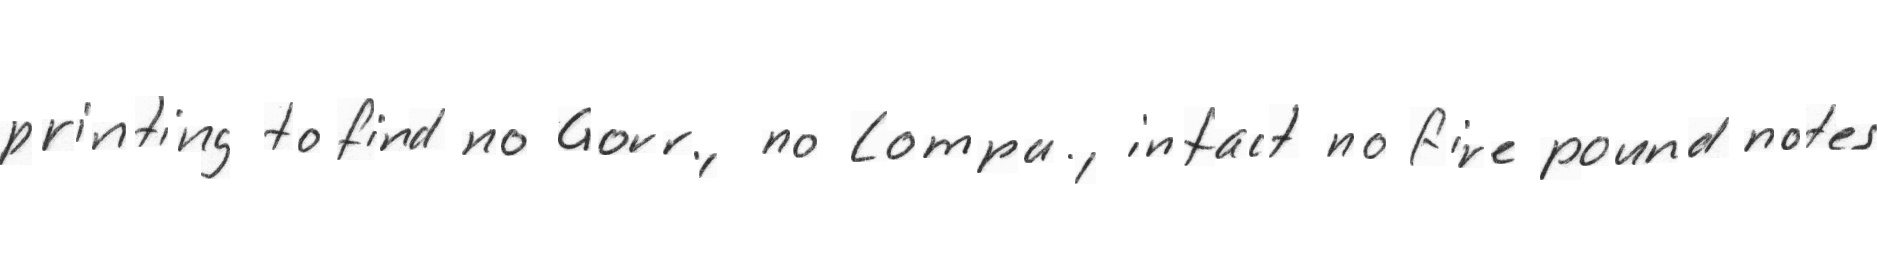 printing to find no Govr., no Compa., intact no five pound notes